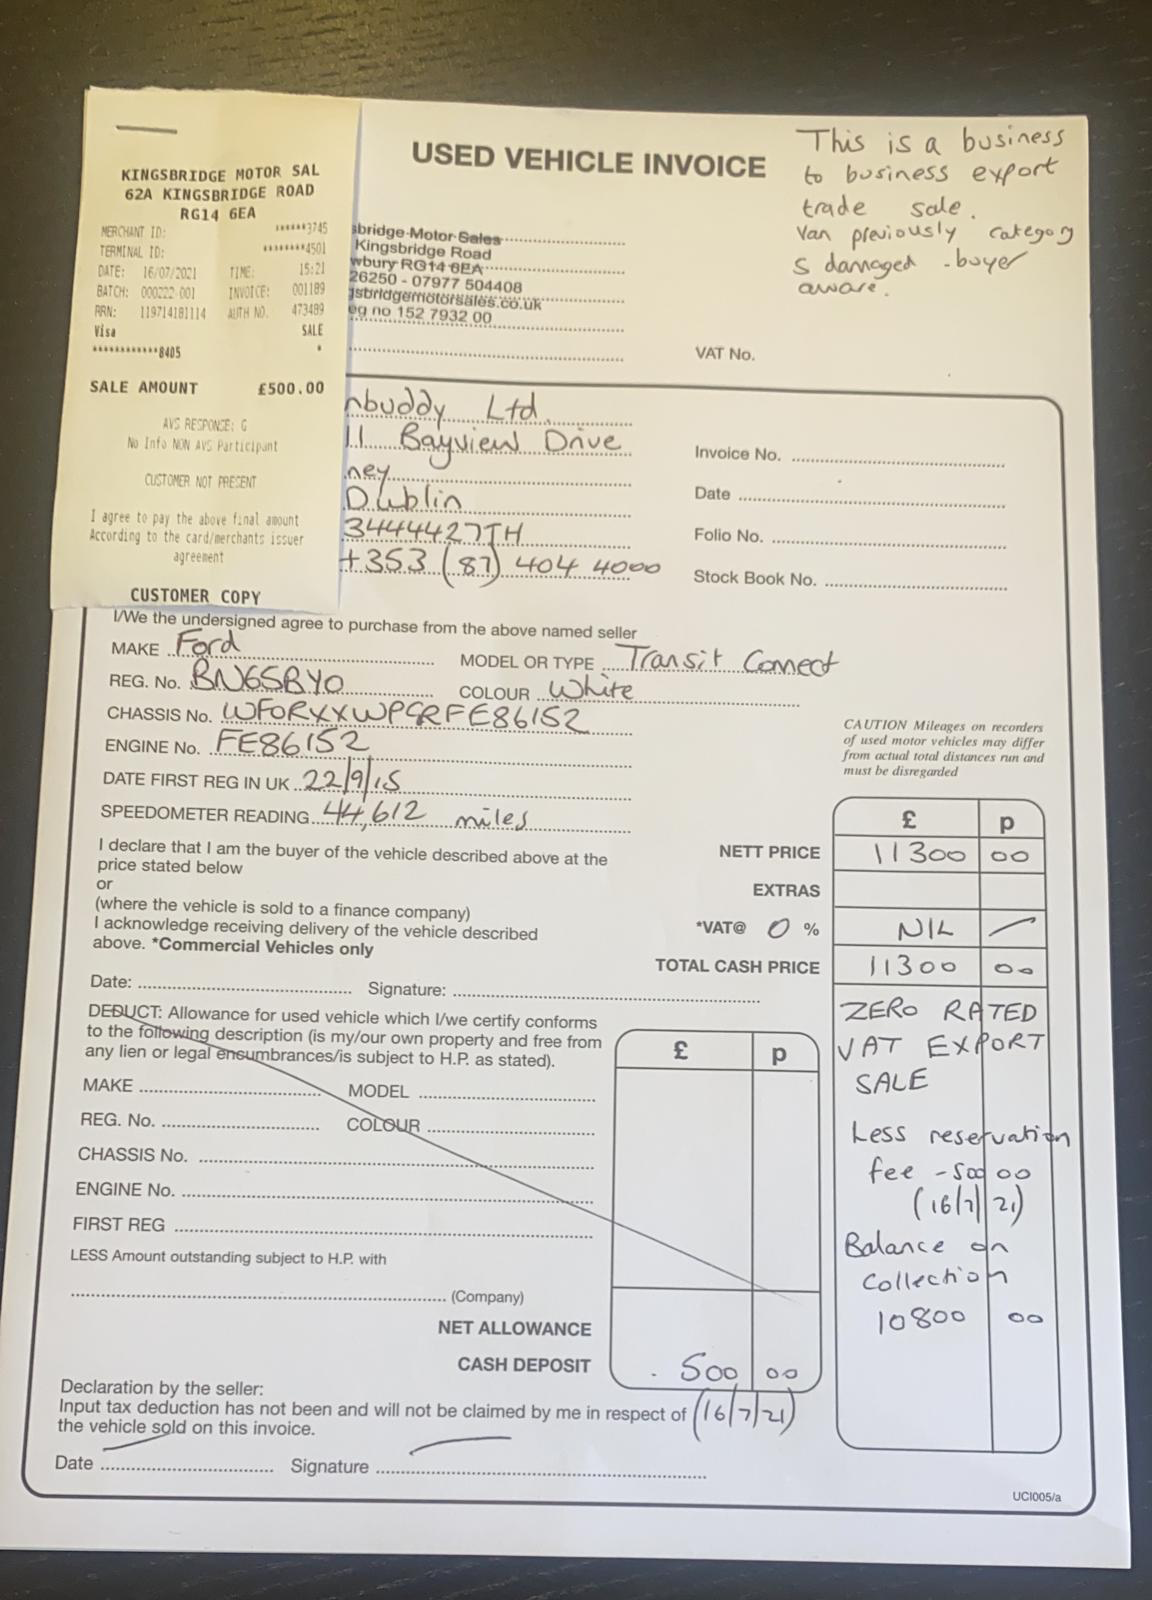 KINGSBRIDGE MOTOR SAL
62A KINGSBRIDGE ROAD
RG14 6EA
MERCHANT ID: ******3745
TERMINAL ID: ********4501
DATE: 16/07/2021 TIME: 15:21
BATCH: 000222-001 INVOICE: 001189
RRN: 119714181114 AUTH NO. 473489
Visa SALE
************8405 *
SALE AMOUNT £500.00
AVS RESPONSE: G
No Info NON AVS Participant
CUSTOMER NOT PRESENT
I agree to pay the above final amount
According to the card/merchants issuer
agreement
CUSTOMER COPY
USED VEHICLE INVOICE
This is a business
to business export
trade sale.
Van previously category
S damaged - buyer
aware.
sbridge Motor Sales
Kingsbridge Road
wbury RG14 6EA
26250 - 07977 504408
gsbridgemotorsales.co.uk
eg no 152 7932 00
VAT No.
nbuddy Ltd.
11 Bayview Drive
ney
Dublin
3444427TH
+353 (87) 404 4000
Invoice No.
Date
Folio No.
Stock Book No.
I/We the undersigned agree to purchase from the above named seller
MAKE Ford
MODEL OR TYPE Transit Connect
REG. No. BN65BYO
COLOUR White
CHASSIS No. WF0RXXWPGRFE86152
ENGINE No. FE86152
DATE FIRST REG IN UK 22/9/15
SPEEDOMETER READING 44,612 miles
CAUTION Mileages on recorders
of used motor vehicles may differ
from actual total distances run and
must be disregarded
I declare that I am the buyer of the vehicle described above at the
price stated below
or
(where the vehicle is sold to a finance company)
I acknowledge receiving delivery of the vehicle described
above. *Commercial Vehicles only
Date: Signature:
£ p
NETT PRICE 11300 00
EXTRAS
*VAT@ 0 % NIL
TOTAL CASH PRICE 11300 00
ZERO RATED
VAT EXPORT
SALE
Less reservation
fee -500 00
(16/7/21)
Balance on
collection
10800 00
DEDUCT: Allowance for used vehicle which I/we certify conforms
to the following description (is my/our own property and free from
any lien or legal encumbrances/is subject to H.P. as stated).
MAKE MODEL
REG. No. COLOUR
CHASSIS No.
ENGINE No.
FIRST REG
LESS Amount outstanding subject to H.P. with
(Company)
£ p
NET ALLOWANCE
CASH DEPOSIT 500 00
(16/7/21)
Declaration by the seller:
Input tax deduction has not been and will not be claimed by me in respect of
the vehicle sold on this invoice.
Date Signature
UCI005/a